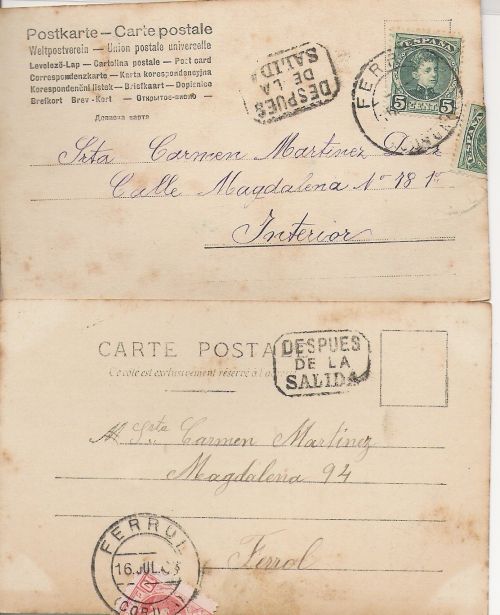 Postkarte — Carte postale
Weltpostverein — Union postale universelle
Levelező-Lap — Cartolina postale — Post card
Correspondenzkarte — Karta korespondencyjna
Korespondenční listek — Briefkaart — Dopisnice
Brefkort Brev-Kort — Открытое-письмо
Дописна карта
DESPUES
DE LA
SALIDA
ESPAÑA
5 CENT. 5
FERROL
ESPAÑA
Srta Carmen Martinez
Calle Magdalena Nº 78 1º
Interior
CARTE POSTA
Ce côté est exclusivement réservé à l'a
DESPUES
DE LA
SALIDA
Srta Carmen Martínez
Magdalena 94
Ferrol
FERROL
16 JUL
(CORU